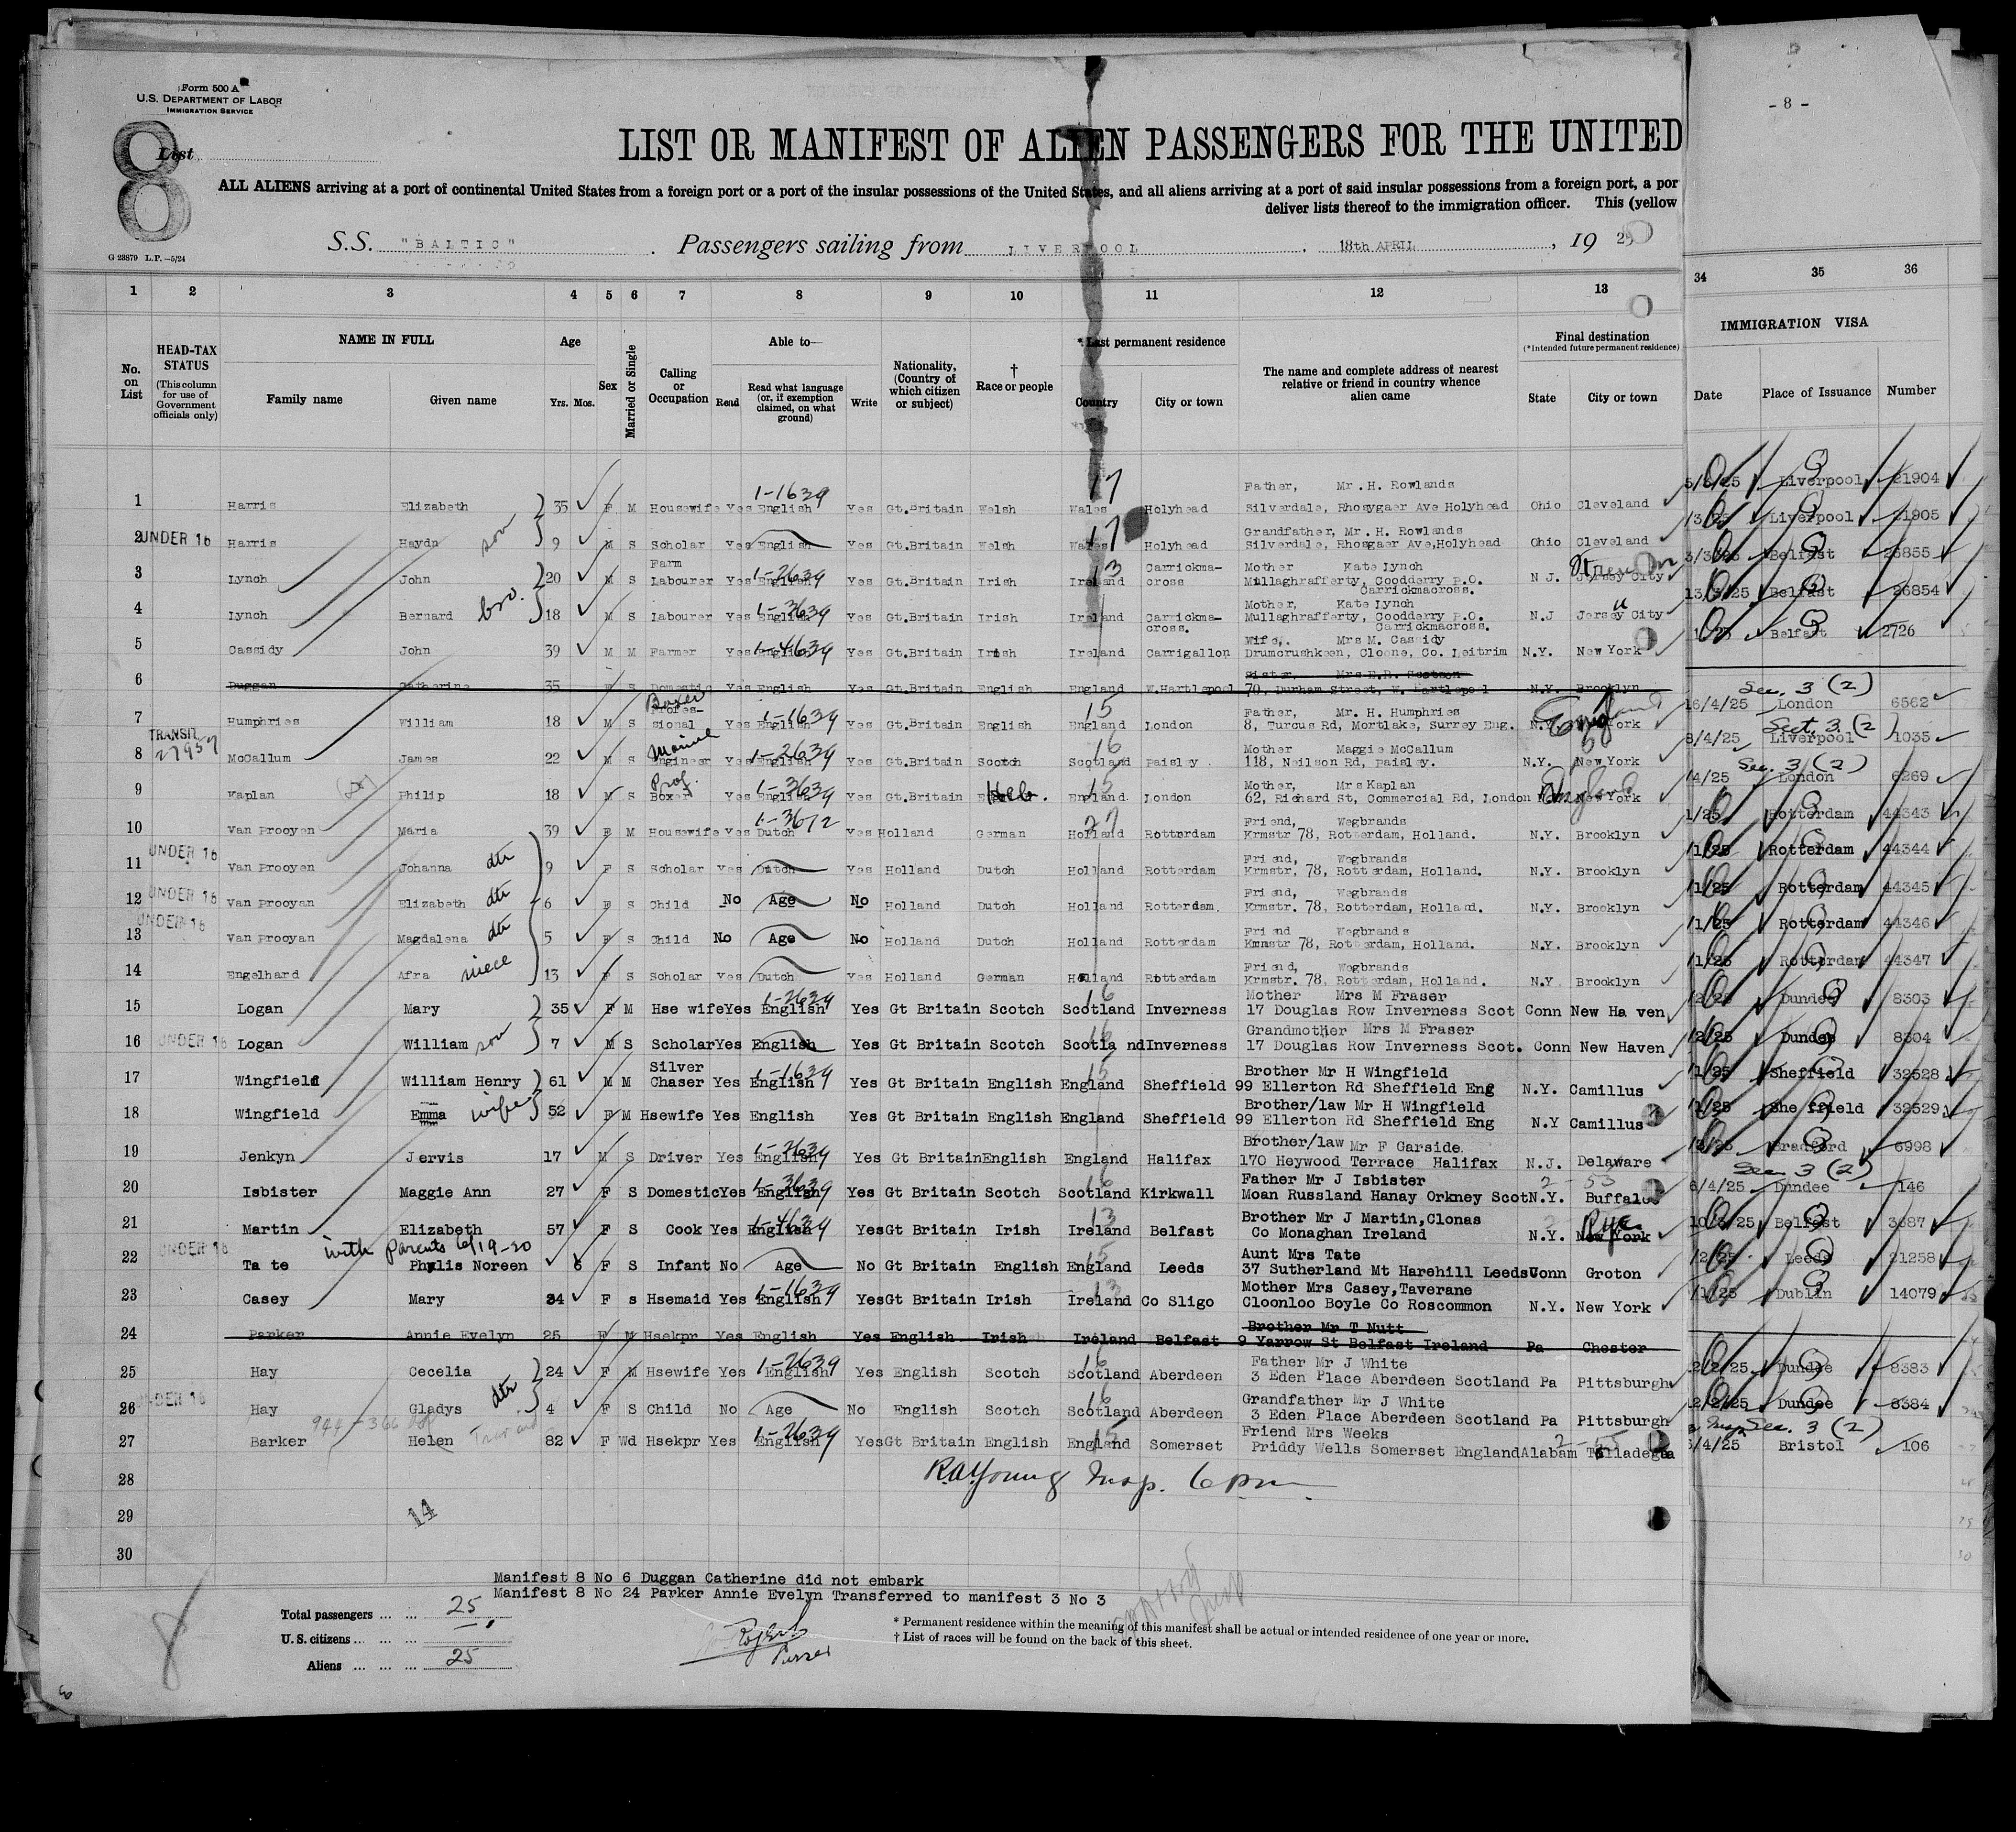 Form 500 A
U.S. DEPARTMENT OF LABOR
IMMIGRATION SERVICE
- 8 -
8
List
LIST OR MANIFEST OF ALIEN PASSENGERS FOR THE UNITED
ALL ALIENS arriving at a port of continental United States from a foreign port or a port of the insular possessions of the United States, and all aliens arriving at a port of said insular possessions from a foreign port, a por
deliver lists thereof to the immigration officer. This (yellow
S.S. "BALTIC". Passengers sailing from LIVERPOOL, 18th APRIL, 19 25
G 23879 L.P.—5/24
1 2 3 4 5 6 7 8 9 10 11 12 13 34 35 36
No. on List
HEAD-TAX STATUS (This column for use of Government officials only)
NAME IN FULL
Family name Given name
Age Yrs. Mos.
Sex
Married or Single
Calling or Occupation
Able to—
Read Read what language (or, if exemption claimed, on what ground) Write
Nationality, (Country of which citizen or subject)
† Race or people
* Last permanent residence
Country City or town
The name and complete address of nearest relative or friend in country whence alien came
Final destination
(*Intended future permanent residence)
State City or town
IMMIGRATION VISA
Date Place of Issuance Number
1-1639 17 Father, Mr. H. Rowlands
1 Harris Elizabeth 35 F M Housewife Yes English Yes Gt.Britain Welsh Wales Holyhead Silverdale, Rhosygaer Ave Holyhead Ohio Cleveland Liverpool 21904
17 Grandfather, Mr. H. Rowlands
2 UNDER 16 Harris Haydn son 9 M S Scholar Yes English Yes Gt.Britain Welsh Wales Holyhead Silverdale, Rhosgaer Ave,Holyhead Ohio Cleveland Liverpool 21905
Farm 1-2639 13 Carrickma- Mother Kate Lynch
3 Lynch John 20 M S Labourer Yes English Yes Gt.Britain Irish Ireland cross Mullaghrafferty, Coodderry P.O. N J. Jersey City Belfast 26855
Carrickmacross.
1-3639 Mother, Kate Lynch
4 Lynch Bernard bro. 18 M S Labourer Yes English Yes Gt.Britain Irish Ireland Carrickma- Mullaghrafferty, Coodderry P.O. N.J Jersey City Belfast 26854
cross. Carrickmacross.
1-4639 Wife, Mrs M. Cassidy
5 Cassidy John 39 M M Farmer Yes English Yes Gt.Britain Irish Ireland Carrigallon Drumcrushkeen, Cloone, Co. Leitrim N.Y. New York Belfast 2726
Sister,
6 Duggan Catherine 35 F S Domestic Yes English Yes Gt.Britain English England W.Hartlepool 70, Durham Street, W. Hartlepool N.Y. Brooklyn
Boxer Profes- 1-1639 15 Father, Mr. H. Humphries England Sec. 3 (2)
7 Humphries William 18 M S sional Yes English Yes Gt.Britain English England London 8, Turcus Rd, Mortlake, Surrey Eng. N.Y. New York 16/4/25 London 6562
TRANSIT 27957 Marine 1-2639 16 Mother Maggie McCallum Sect. 3 (2)
8 McCallum James 22 M S Engineer Yes English Yes Gt.Britain Scotch Scotland Paisley 118, Neilson Rd, Paisley. N.Y. New York 8/4/25 Liverpool 1035
Prof. 1-3639 15 Mother, Mrs Kaplan England Sec. 3 (2)
9 Kaplan Philip 18 M S Boxer Yes English Yes Gt.Britain Heb. England London 62, Richard St, Commercial Rd, London New York 4/25 London 6269
1-3612 27 Friend, Wegbrands
10 Van Prooyen Maria 39 F M Housewife Yes Dutch Yes Holland German Holland Rotterdam Krmstr 78, Rotterdam, Holland. N.Y. Brooklyn 1/25 Rotterdam 44343
Friend, Wegbrands
11 UNDER 16 Van Prooyen Johanna dtr 9 F S Scholar Yes Dutch Yes Holland Dutch Holland Rotterdam Krmstr, 78, Rotterdam, Holland. N.Y. Brooklyn 1/25 Rotterdam 44344
Friend, Wegbrands
12 UNDER 16 Van Prooyan Elizabeth dtr 6 F S Child No Age No Holland Dutch Holland Rotterdam. Krmstr. 78, Rotterdam, Holland. N.Y. Brooklyn 1/25 Rotterdam 44345
Friend Wegbrands
13 UNDER 16 Van Prooyan Magdalena dtr 5 F S Child No Age No Holland Dutch Holland Rotterdam Krmstr 78, Rotterdam, Holland. N.Y. Brooklyn 1/25 Rotterdam 44346
Friend, Wegbrands
14 Engelhard Afra niece 13 F S Scholar Yes Dutch Yes Holland German Holland Rotterdam Krmstr. 78, Rotterdam, Holland. N.Y Brooklyn 1/25 Rotterdam 44347
1-2639 16 Mother Mrs M Fraser
15 Logan Mary 35 F M Hse wife Yes English Yes Gt Britain Scotch Scotland Inverness 17 Douglas Row Inverness Scot Conn New Ha ven 2/25 Dundee 8303
16 Grandmother Mrs M Fraser
16 UNDER 16 Logan William son 7 M S Scholar Yes English Yes Gt Britain Scotch Scotla nd Inverness 17 Douglas Row Inverness Scot. Conn New Haven 2/25 Dundee 8304
Silver 1-1639 15 Brother Mr H Wingfield
17 Wingfield William Henry 61 M M Chaser Yes English Yes Gt Britain English England Sheffield 99 Ellerton Rd Sheffield Eng N.Y. Camillus 1/25 Sheffield 32528
Brother/law Mr H Wingfield
18 Wingfield Emma wife 52 F M Hsewife Yes English Yes Gt Britain English England Sheffield 99 Ellerton Rd Sheffield Eng N.Y Camillus 1/25 She ffield 32529
1-2639 Brother/law Mr F Garside.
19 Jenkyn Jervis 17 M S Driver Yes English Yes Gt Britain English England Halifax 170 Heywood Terrace Halifax N.J. Delaware Bradford 6998
1-3639 16 Father Mr J Isbister 2-53 Sec. 3 (2)
20 Isbister Maggie Ann 27 F S Domestic Yes English Yes Gt Britain Scotch Scotland Kirkwall Moan Russland Hanay Orkney Scot N.Y. Buffalo 6/4/25 Dundee 146
1-4639 13 Brother Mr J Martin,Clonas Rye
21 Martin Elizabeth 57 F S Cook Yes English Yes Gt Britain Irish Ireland Belfast Co Monaghan Ireland N.Y. New York Belfast 3687
UNDER 16 with parents 6/19-20 15 Aunt Mrs Tate
22 Ta te Phylis Noreen 6 F S Infant No Age No Gt Britain English England Leeds 37 Sutherland Mt Harehill Leeds Conn Groton 2/25 Leeds 21258
1-1639 13 Mother Mrs Casey,Taverane
23 Casey Mary 34 F s Hsemaid Yes English Yes Gt Britain Irish Ireland Co Sligo Cloonloo Boyle Co Roscommon N.Y. New York 1/25 Dublin 14079
Brother Mr T Nutt
24 Parker Annie Evelyn 25 F M Hsekpr Yes English Yes English Irish Ireland Belfast 9 Yarrow St Belfast Ireland Pa Chester
1-2639 16 Father Mr J White
25 Hay Cecelia 24 F M Hsewife Yes English Yes English Scotch Scotland Aberdeen 3 Eden Place Aberdeen Scotland Pa Pittsburgh 2/2/25 Dundee 8383
16 Grandfather Mr J White
26 UNDER 16 Hay Gladys dtr 4 F S Child No Age No English Scotch Scotland Aberdeen 3 Eden Place Aberdeen Scotland Pa Pittsburgh 2/2/25 Dundee 8384
944-366 1-2639 15 Friend Mrs Weeks 2-55 Sec. 3 (2)
27 Barker Helen 82 F Wd Hsekpr Yes English Yes Gt Britain English England Somerset Priddy Wells Somerset England Alabam Talladega /4/25 Bristol 106
28 R.A. Young Insp. 6 pm
29 14
30
Manifest 8 No 6 Duggan Catherine did not embark
Manifest 8 No 24 Parker Annie Evelyn Transferred to manifest 3 No 3
Total passengers ... ... 25
U. S. citizens ... ... ...
Aliens ... ... ... 25
Purser
* Permanent residence within the meaning of this manifest shall be actual or intended residence of one year or more.
† List of races will be found on the back of this sheet.
8